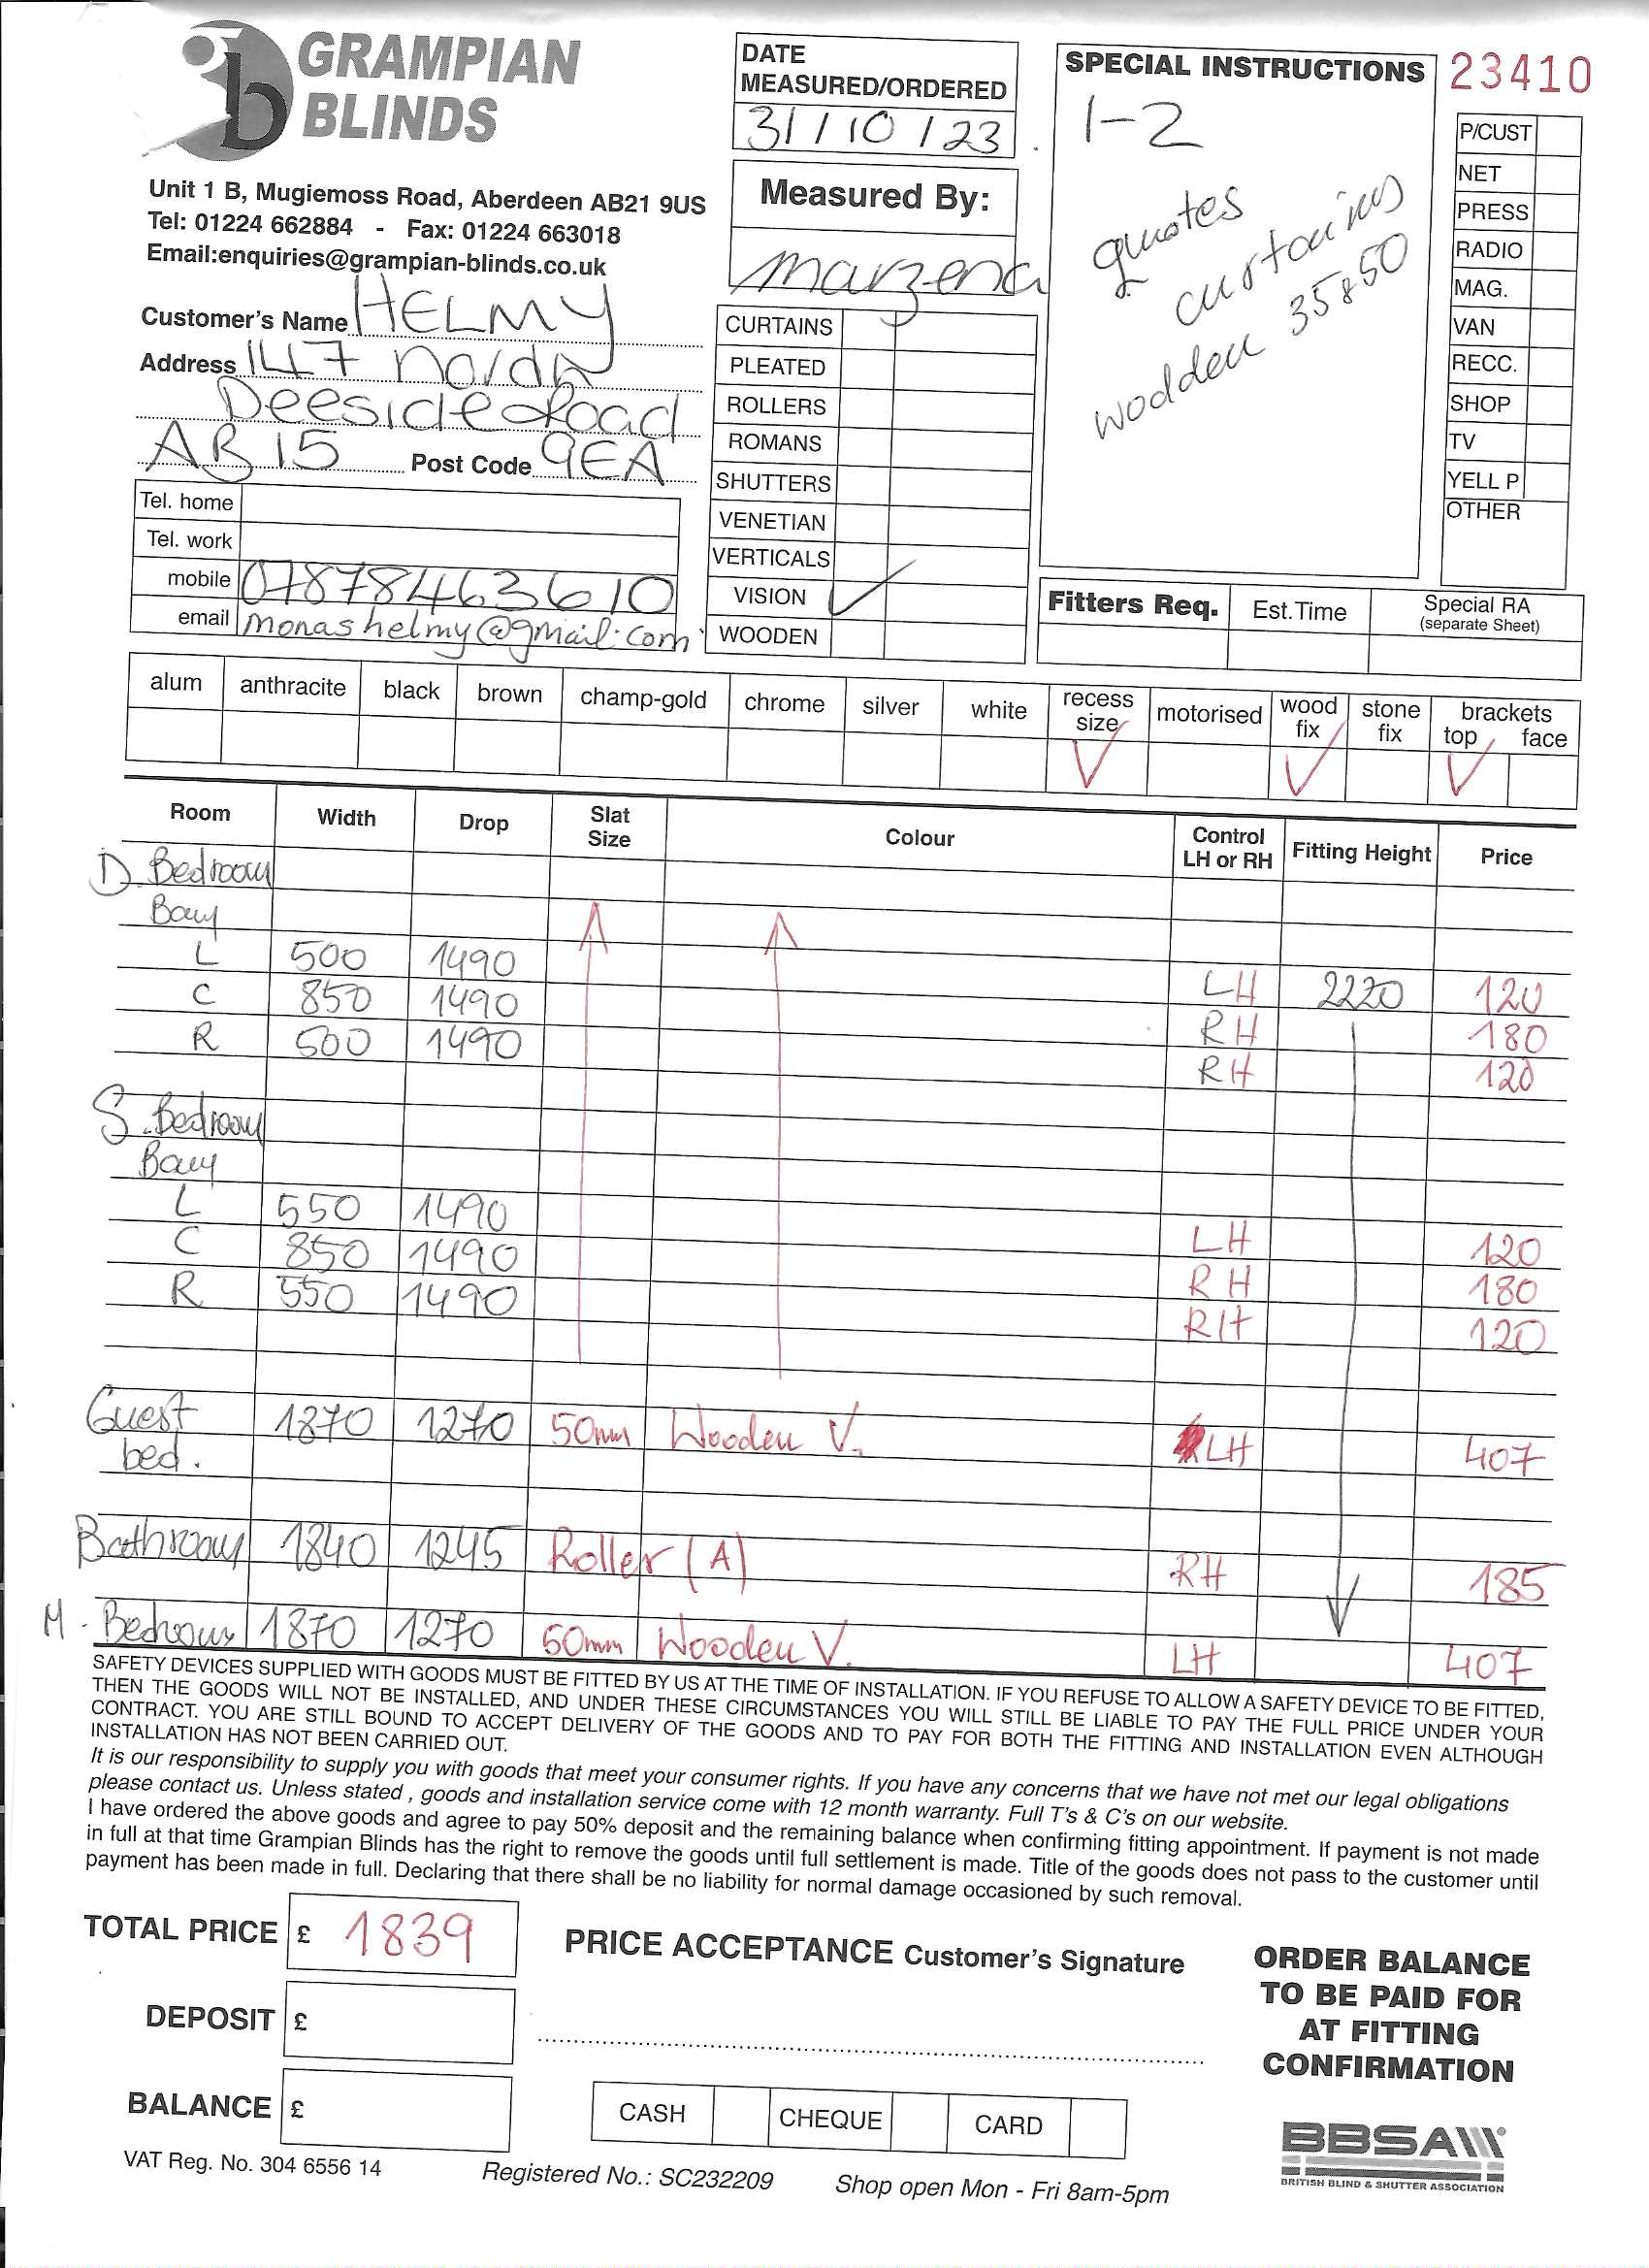 GRAMPIAN
BLINDS
Unit 1 B, Mugiemoss Road, Aberdeen AB21 9US
Tel: 01224 662884 - Fax: 01224 663018
Email:enquiries@grampian-blinds.co.uk
DATE
MEASURED/ORDERED
31/10/23
Measured By:
Marzena
SPECIAL INSTRUCTIONS
1-2
quotes
curtains
wodden 35&50
23410
P/CUST
NET
PRESS
RADIO
MAG.
VAN
RECC.
SHOP
TV
YELL P
OTHER
Customer's Name HELMY
Address 147 North
Deeside Road
AB15 Post Code 9EA
Tel. home
Tel. work
mobile 07878463610
email monashelmy@gmail.com
CURTAINS
PLEATED
ROLLERS
ROMANS
SHUTTERS
VENETIAN
VERTICALS
VISION ✓
WOODEN
Fitters Req. Est.Time Special RA
(separate Sheet)
alum anthracite black brown champ-gold chrome silver white recess size motorised wood fix stone fix brackets top face
✓ ✓ ✓
Room Width Drop Slat Size Colour Control LH or RH Fitting Height Price
D. Bedroom
Bay
L 500 1490 LH 2220 120
C 850 1490 RH 180
R 500 1490 RH 120
S. Bedroom
Bay
L 550 1490 LH 120
C 850 1490 RH 180
R 550 1490 RH 120
Guest 1870 1270 50mm Wooden V. LH 407
bed.
Bathroom 1840 1245 Roller (A) RH 185
M. Bedroom 1870 1270 50mm Wooden V. LH 407
SAFETY DEVICES SUPPLIED WITH GOODS MUST BE FITTED BY US AT THE TIME OF INSTALLATION. IF YOU REFUSE TO ALLOW A SAFETY DEVICE TO BE FITTED,
THEN THE GOODS WILL NOT BE INSTALLED, AND UNDER THESE CIRCUMSTANCES YOU WILL STILL BE LIABLE TO PAY THE FULL PRICE UNDER YOUR
CONTRACT. YOU ARE STILL BOUND TO ACCEPT DELIVERY OF THE GOODS AND TO PAY FOR BOTH THE FITTING AND INSTALLATION EVEN ALTHOUGH
INSTALLATION HAS NOT BEEN CARRIED OUT.
It is our responsibility to supply you with goods that meet your consumer rights. If you have any concerns that we have not met our legal obligations
please contact us. Unless stated , goods and installation service come with 12 month warranty. Full T's & C's on our website.
I have ordered the above goods and agree to pay 50% deposit and the remaining balance when confirming fitting appointment. If payment is not made
in full at that time Grampian Blinds has the right to remove the goods until full settlement is made. Title of the goods does not pass to the customer until
payment has been made in full. Declaring that there shall be no liability for normal damage occasioned by such removal.
TOTAL PRICE £ 1839
PRICE ACCEPTANCE Customer's Signature
DEPOSIT £
BALANCE £
CASH CHEQUE CARD
ORDER BALANCE
TO BE PAID FOR
AT FITTING
CONFIRMATION
BBSA
BRITISH BLIND & SHUTTER ASSOCIATION
VAT Reg. No. 304 6556 14
Registered No.: SC232209
Shop open Mon - Fri 8am-5pm